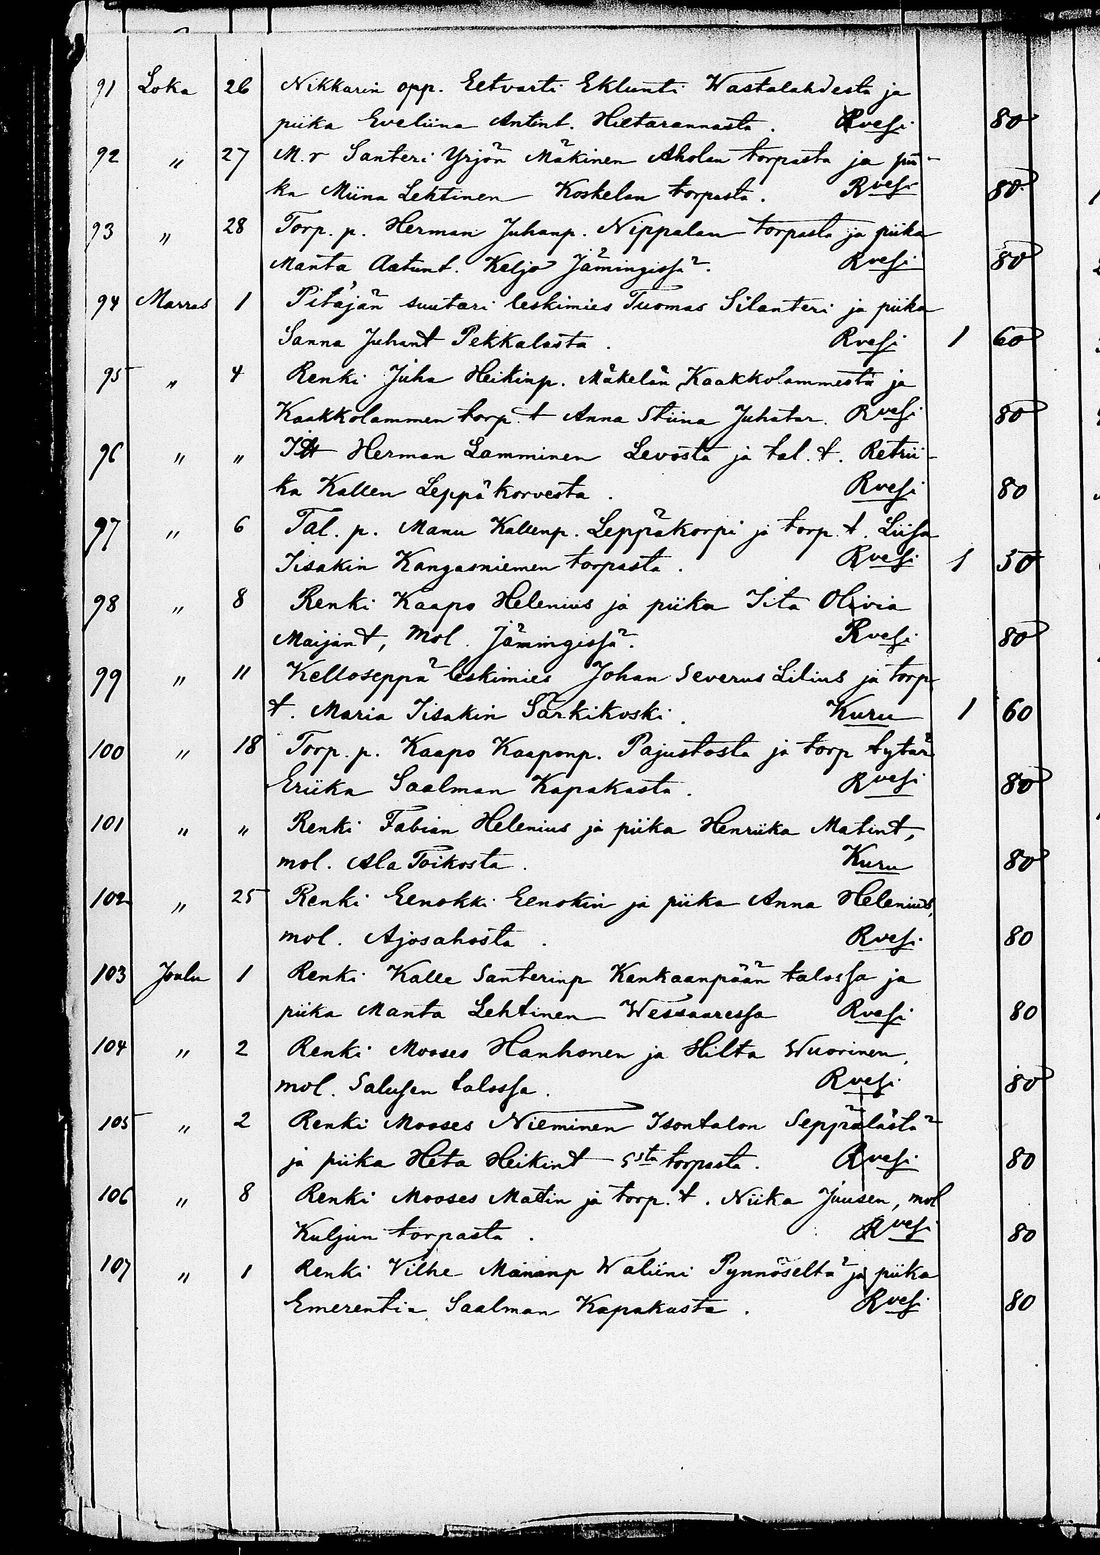 91 Loka 26 Nikkarin opp. Eetvarti Eklunti Wastalahdesta ja
piika Eveliina Antint. Hiitarannasta. Rvesi 80
92 " 27 M.r Santeri Yrjön Mäkinen Aholan torpasta ja pii-
ka Miina Lehtinen Koskelan torpasta. Rvesi 80
93 " 28 Torp. p. Herman Juhanp. Nippalan torpasta ja piika
Manta Aatunt. Keljo Jämingissä. Rvesi 80
94 Marras 1 Pitäjän suutari leskimies Tuomas Silanteri ja piika
Sanna Juhant Pekkalasta. Rvesi 1 60
95 " 4 Renki Juha Heikinp. Mäkelän Kaakkolammesta ja
Kaakkolammen torp. t Anna Stiina Juhatar. Rvesi 80
96 " " Itt Herman Lamminen Levosta ja tal. t. Retrii-
ka Kallen Leppäkorvesta. Rvesi 80
97 " 6 Tal. p. Manu Kallenp. Leppäkorpi ja torp. t. Liisa
Iisakin Kangasniemen torpasta. Rvesi 1 50
98 " 8 Renki Kaapo Helenius ja piika Iita Olivia
Maijant, mol. Jämingissä. Rvesi 80
99 " 11 Kelloseppä leskimies Johan Severus Lilius ja torp
t. Maria Iisakin Särkikoski. Kuru 1 60
100 " 18 Torp. p. Kaapo Kaaponp. Pajustosta ja torp tytär
Eriika Saalman Kapakasta. Rvesi 80
101 " " Renki Fabian Helenius ja piika Henriika Matint,
mol. Ala Toikosta. Kuru 80
102 " 25 Renki Eenokki Eenokin ja piika Anna Helenius,
mol. Ajosahosta. Rvesi 80
103 Joulu 1 Renki Kalle Santerinp Kankaanpään talossa ja
piika Manta Lehtinen Wessaaressa Rvesi 80
104 " 2 Renki Mooses Hanhonen ja Hilta Wuorinen,
mol. Salusen talossa. Rvesi 80
105 " 2 Renki Mooses Nieminen Isontalon Seppälästä
ja piika Heta Heikint — sta torpasta. Rvesi 80
106 " 8 Renki Mooses Matin ja torp. t. Niika Juusen, mol
Kuljun torpasta. Rvesi 80
107 " 1 Renki Vilhe Mananp Waliini Pynnöseltä ja piika
Emerentia Saalman Kapakasta. Rvesi 80